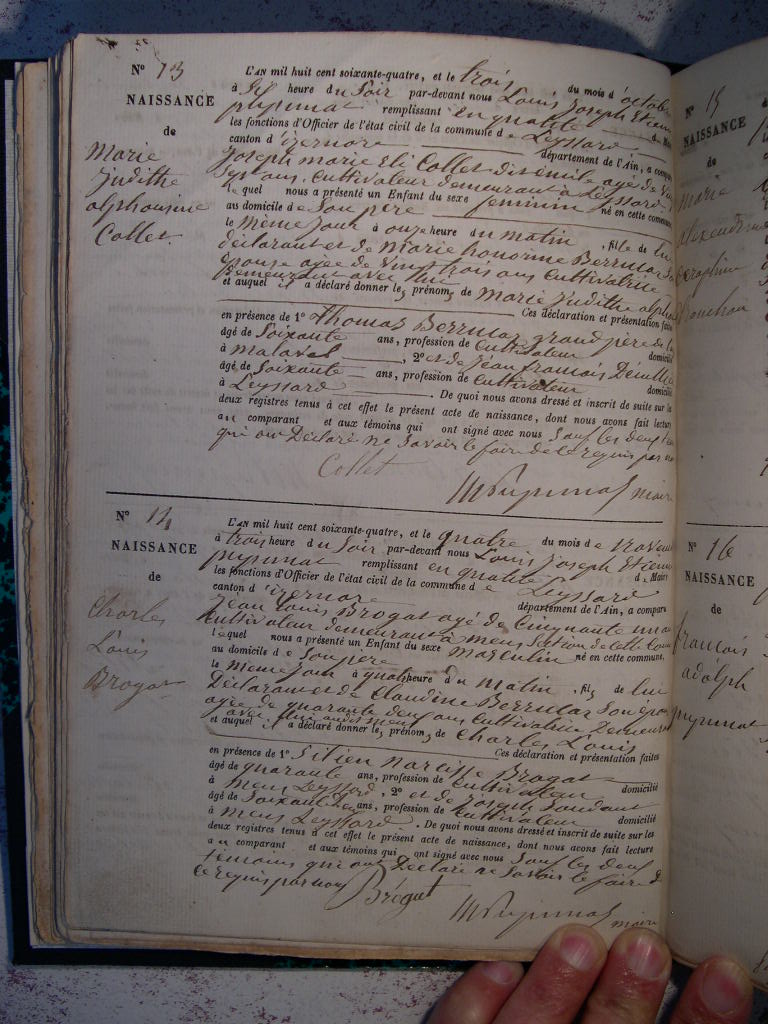 N° 13
NAISSANCE
de
Marie
Judithe
alphonsine
Collet
L'AN mil huit cent soixante-quatre, et le trois du mois d'octobre
à six heure du Soir par-devant nous Louis Joseph Etienne
puyunat remplissant en qualité de Maire
les fonctions d'Officier de l'état civil de la commune de Leyssard
canton d'izernore département de l'Ain, a comparu
Joseph marie Collet agé de
Sept ans, Cultivateur demeurant à Leyssard
lequel nous a présenté un Enfant du sexe feminin né en cette commune
au domicile de Son père
le même jour à onze heure du matin , fille de lui
déclarant et de Marie honorine Berrutaz Son
épouse agée de Vingt trois ans Cultivatrice
Demeurant avec lui
et auquel il a déclaré donner les prénoms de Marie Judithe alpho
Ces déclaration et présentation faites
en présence de 1° Thomas Berrutaz grand père de l
âgé de Soixante ans, profession de Cultivateur domicilié
à malaval , 2° et de Jean francois
âgé de Soixante ans, profession de Cultivateur domicilié
à Leyssard . De quoi nous avons dressé et inscrit de suite sur les
deux registres tenus à cet effet le présent acte de naissance, dont nous avons fait lecture
au comparant et aux témoins qui ont signé avec nous Sauf les deux
qui ont Déclaré ne Savoir le faire de ce requis par nous
Collet
maire
N° 14
NAISSANCE
de
Charles
Louis
Brogat
L'AN mil huit cent soixante-quatre, et le quatre du mois de Novembre
à trois heure du Soir par-devant nous Louis Joseph Etienne
puyunat remplissant en qualité de Maire
les fonctions d'Officier de l'état civil de la commune de Leyssard
canton d'izernore département de l'Ain, a comparu
Jean Louis Brogat agé de Cinquante un ans
Cultivateur demeurant à mens Section de cette com
lequel nous a présenté un Enfant du sexe Masculin né en cette commune,
au domicile de Son père
le même jour à quatre heure du matin , fils de lui
Déclarant et de Claudine Berrutaz Son épouse
agée de quarante deux ans Cultivatrice Demeurant
avec lui audit mens
et auquel il a déclaré donner les prénoms de Charles Louis
Ces déclaration et présentation faites
en présence de 1° narcisse Brogat
âgé de quarante ans, profession de Cultivateur domicilié
à mens Leyssard , 2° et de Joseph
âgé de Soixante ans, profession de Cultivateur domicilié
à mens Leyssard . De quoi nous avons dressé et inscrit de suite sur les
deux registres tenus à cet effet le présent acte de naissance, dont nous avons fait lecture
au comparant et aux témoins qui ont signé avec nous Sauf les deux
témoins qui ont Déclaré ne Savoir le faire de
ce requis par nous
Brogat
maire
N° 15
NAISSANCE
de
marie
N° 16
NAISSANCE
de
francois
adolph
puyunat